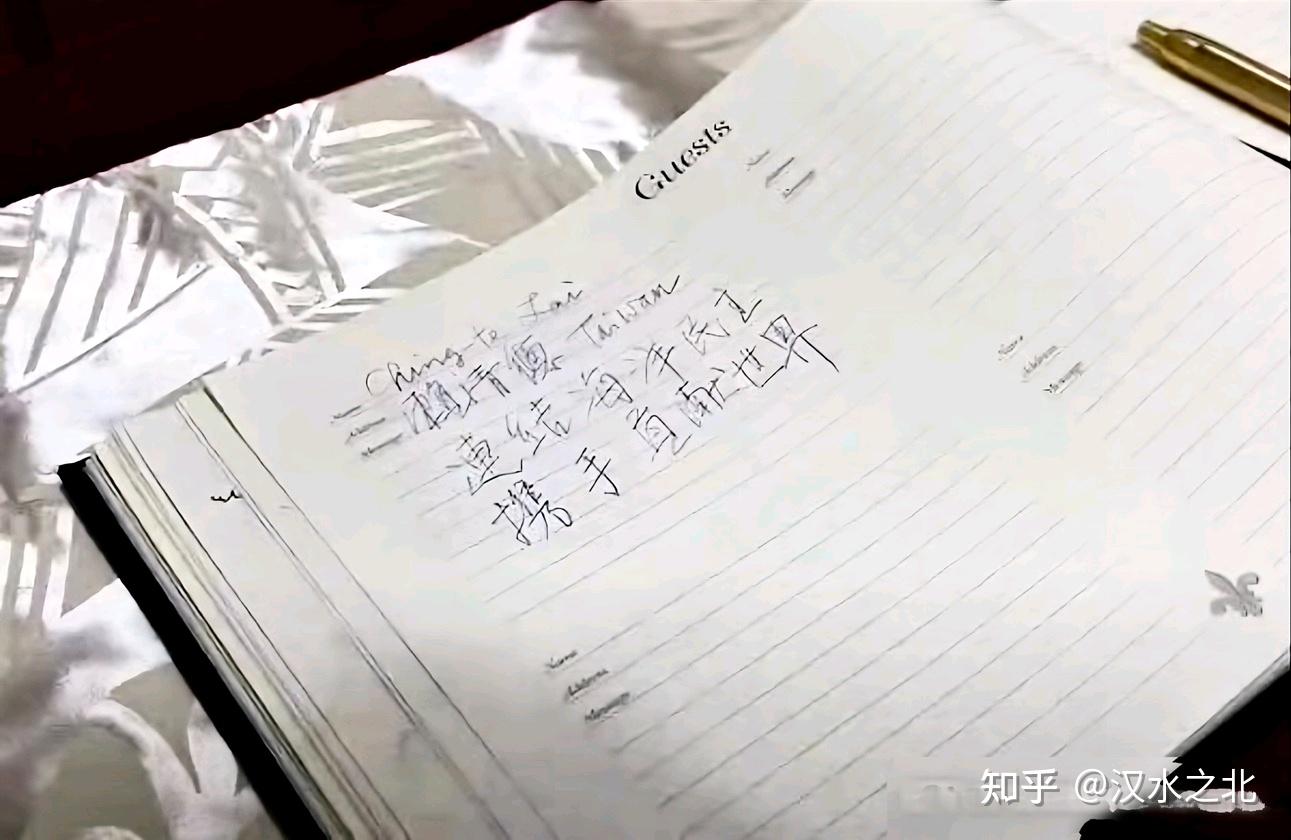 Guests
Ching-te Lai
賴清德 Taiwan
連結海洋民主
携手貢献世界
Name
Address
Message
Name
Address
Message
知乎 @汉水之北